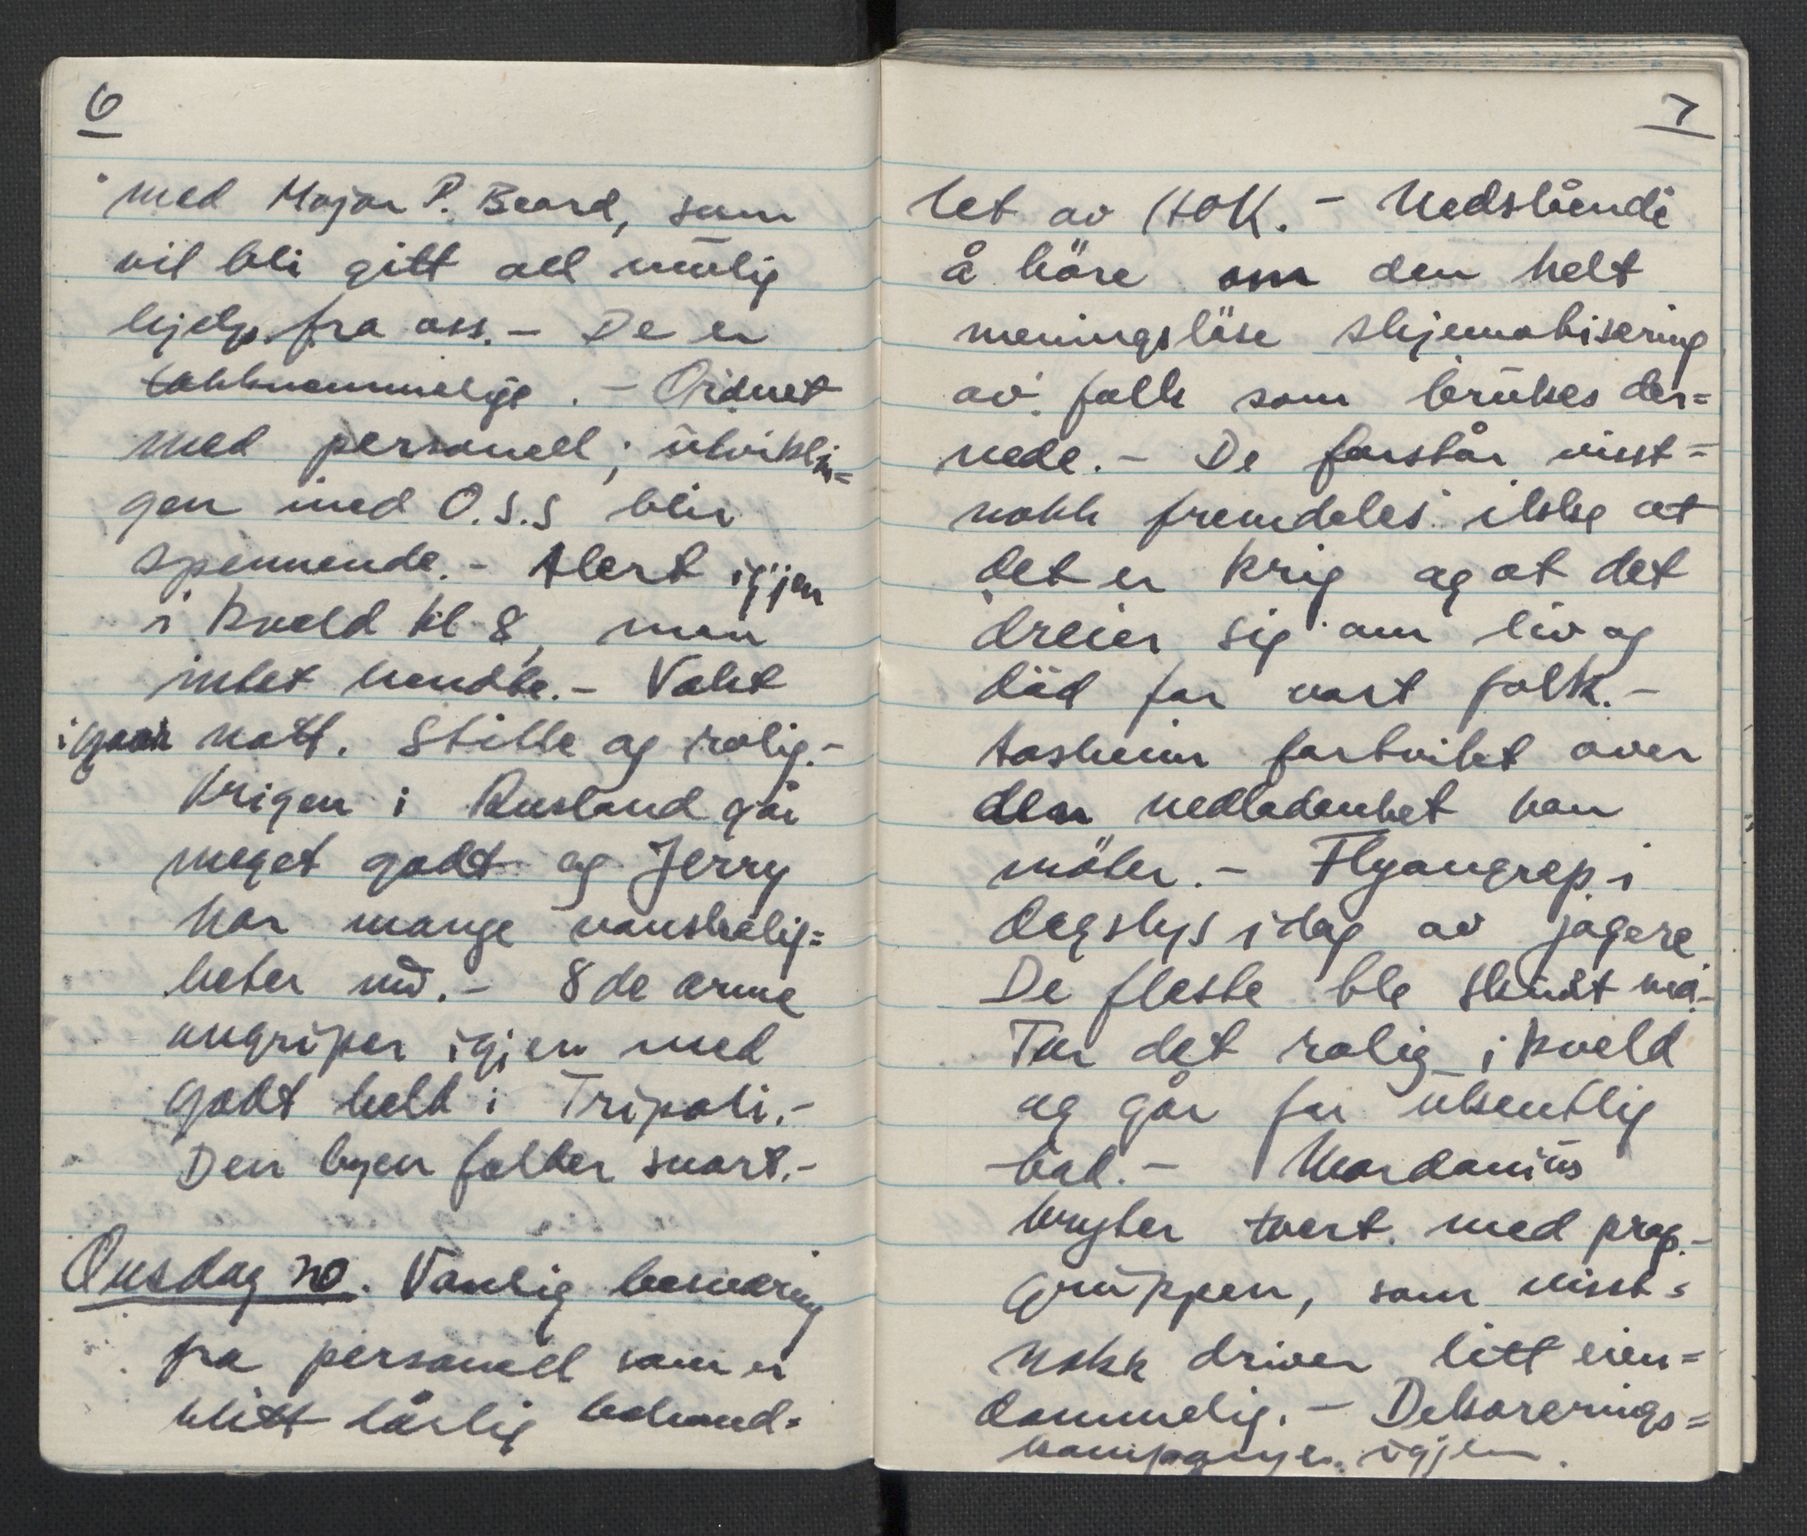 6
med Major P. Beard, som
vil bli gitt all mulig
hjelp fra oss. - De er
takknemmelige. - Ordnet
med personell; utviklin=
gen med O.S.S blir
spennende. - Alert igjen
i kveld kl 8, men
intet hendte. - Vakt
igaar natt. Stille og rolig. -
Krigen i Russland går
meget godt og Jerry
har mange vanskelig=
heter nu. - 8de arme
angriper igjen med
godt held i Tripoli. -
Den byen falder snart. -
Onsdag 20. Vanlig besværing
fra personell som er
blitt dårlig behand=
7
let av HOK. - Nedslående
å höre om den helt
meningslöse skjematisering
av folk som brukes der=
nede. - De forstår visst=
nokk fremdeles ikke at
det er krig og at det
dreier sig om liv og
död for vort folk. -
Aasheim fortvilet over
den nedladenhet han
möter. - Flyangrep i
dagslys idag av jagere
De fleste ble skudt ned. -
Tar det rolig i kveld
og går for utsentlig
bad. - Mardonius
bryter tvert med prop. -
gruppen, som visst=
nokk driver litt eien=
dommelig. - Dekorerings=
kompanye. igjen.